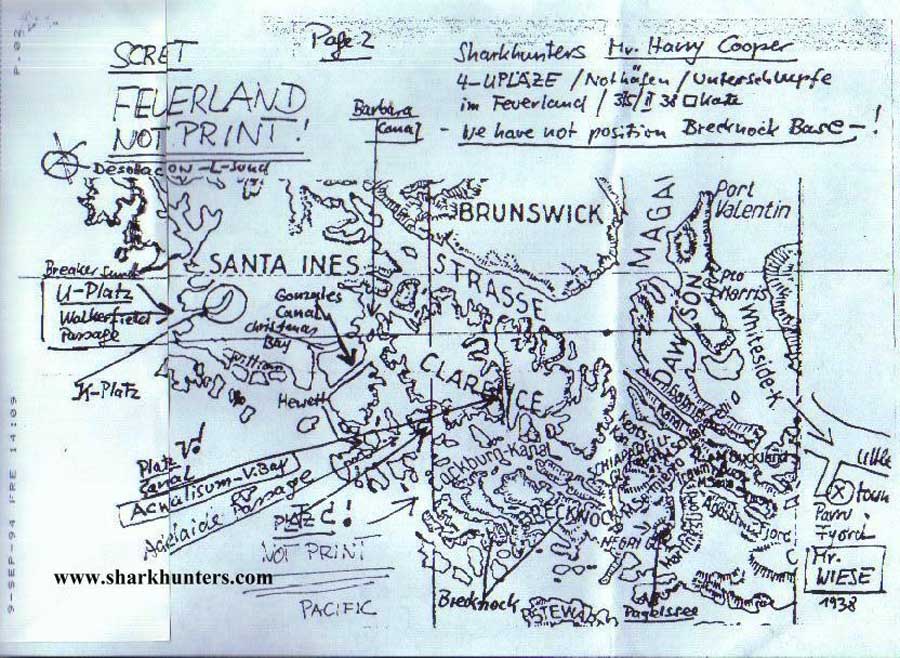 P.03
SCRET
Page 2
FEUERLAND
NOT PRINT!
Sharkhunters Mr. Harry Cooper
4-UPLÄZE / Nothäfen / Unterschlupfe
im Feuerland /
- We have not position Brecknock Base - !
Barbara
Canal
BRUNSWICK
MAGAL
Port
Valentin
SANTA INES
STRASSE
Breaker Sund
U-Platz
Walkerfield
Passage
Gonzales
Canal
Christmas
Bay
DAWSON
Whiteside-K.
K-Platz
William
Hewett
CLARENCE
Gabriel
Kanal
Keats-
Platz
Canal
Adelaide Passage
Cockburn-Kanal
M Buckland
Little
town
Fjord
PLATZ C!
NOT PRINT
BRECKNOCK
NEGRI
Agostini Fjord
Mr.
WIESE
1938
www.sharkhunters.com
PACIFIC
Brecknock
STEWA
Pagelssee
9-SEP-94 FRE 14:09